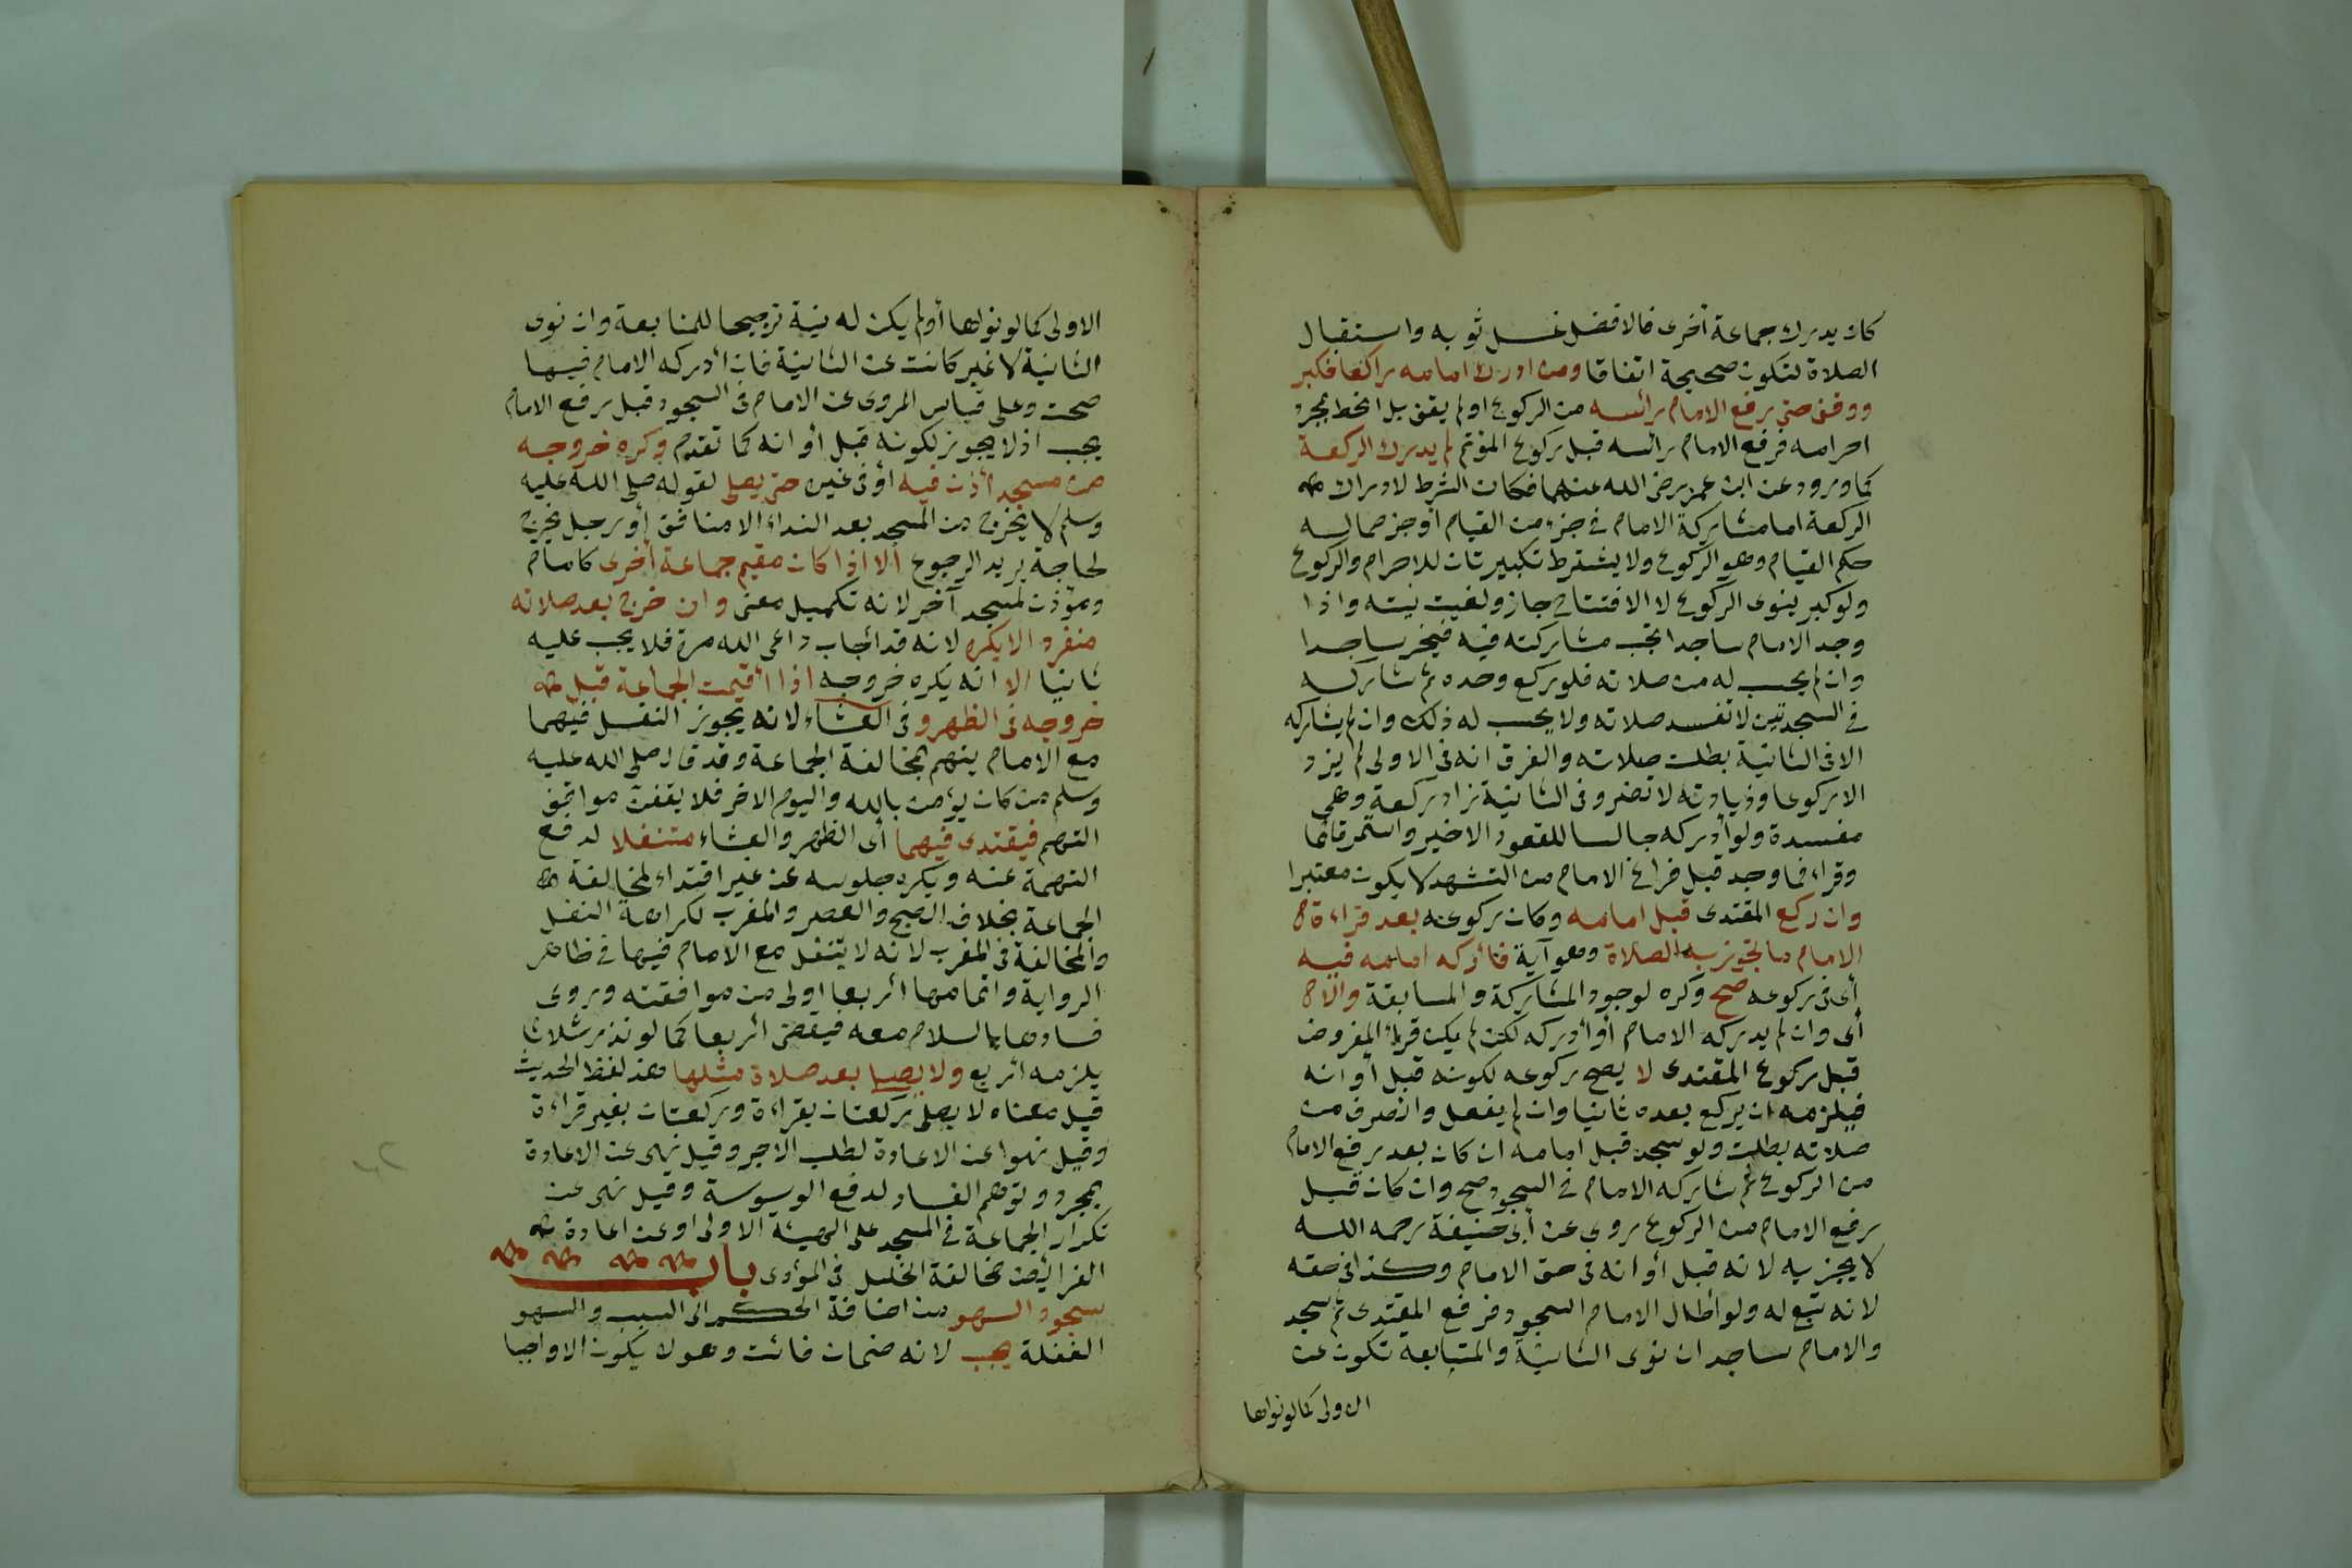 كان يدرك جماعة أخرى فالافضل غسل ثوبه واستقبال
الصلاة لتكون صحيحة اتفاقا ومن ادرك امامه راكعا فكبر
ووقف حتى رفع الامام رائسه من الركوع اولم يقف بل انحط بمجرد
احرامه فرفع الامام رائسه قبل ركوع المؤتم لم يدرك الركعة
كما ورد عن ابن عمر رضى الله عنهما فكان الشرط لادراك
الركعة اما مشاركة الامام في جزء من القيام أو جز مما له
حكم القيام وهو الركوع ولا يشترط تكبيرتان للاحرام والركوع
ولو كبر ينوى الركوع لا الافتتاح جاز ولغيت نيته واذا
وجد الامام ساجدا تجب مشاركته فيه فيخر ساجدا
وان لم يحسب له من صلاته فلو ركع وحده ثم شاركه
في السجدتين لا تفسد صلاته ولا يحسب له ذلك وان لم يشاركه
الا فى الثانية بطلت صلاته والفرق انه فى الاولى لم يزد
الا ركوعا وزيادته لا تضر وفى الثانية زاد ركعة وهى
مفسدة ولو أدركه جالسا للقعود الاخير واستمر قائما
وقراء فما وجد قبل فراغ الامام من التشهد لا يكون معتبرا
وان ركع المقتدى قبل امامه وكان ركوعه بعد قراءة
الامام ما تجوز به الصلاة وهو آية فأدركه امامه فيه
أى فى ركوعه صح وكره لوجود المشاركة والمسابقة والا
أى وان لم يدركه الامام أو أدركه لكن لم يكن قرأ المفروض
قبل ركوع المقتدى لا يصح ركوعه لكونه قبل أوانه
فيلزمه ان يركع بعده ثانيا وان لم يفعل وانصرف من
صلاته بطلت ولو سجد قبل امامه ان كان بعد رفع الامام
من الركوع ثم شاركه الامام في السجود صح وان كان قبل
رفع الامام من الركوع روى عن أبى حنيفة رحمه الله
لا يجزيه لانه قبل أوانه فى حق الامام وكذا فى حقه
لانه تبع له ولو أطال الامام السجود فرفع المقتدى ثم سجد
والامام ساجد ان نوى الثانية والمتابعة تكون عن
الاولى كما لو نواها
الاولى كما لو نواها أولم يكن له نية ترجيحا للمتابعة وان نوى
الثانية لا غير كانت عن الثانية فان أدركه الامام فيها
صحت وعلى قياس المروى عن الامام فى السجود قبل رفع الامام
يجب اذ لا يجوز لكونه قبل أوانه كما تقدم وكره خروجه
من مسجد أذن فيه أو فى غيره حتى يصلى لقوله صلى الله عليه
وسلم لا يخرج من المسجد بعد النداء الا منافق أو رجل يخرج
لحاجة يريد الرجوع الا اذا كان مقيم جماعة أخرى كامام
ومؤذن لمسجد آخر لانه تكميل معنى وان خرج بعد صلاته
منفردا لا يكره لانه قد أجاب داعى الله مرة فلا يجب عليه
ثانيا الا انه يكره خروجه اذا أقيمت الجماعة قبل
خروجه فى الظهر وفى العشاء لانه يجوز النفل فيهما
مع الامام يتهم بمخالفة الجماعة وقد قال صلى الله عليه
وسلم من كان يؤمن بالله واليوم الاخر فلا يقفن مواقف
التهم فيقتدى فيهما أى الظهر والعشاء متنفلا لدفع
التهمة عنه ويكره جلوسه عن غير اقتداء لمخالفة
الجماعة بخلاف الصبح والعصر والمغرب لكراهة النفل
والمخالفة فى المغرب لانه لا يتنفل مع الامام فيها في ظاهر
الرواية واتمامها أربعا اولى من موافقته وروى
فسادها بالسلام معه فيقضى أربعا كما لو نذر ثلاثا
يلزمه أربع ولا يصلى بعد صلاة مثلها هذا لفظ الحديث
قيل معناه لا يصلى ركعتان بقراءة وركعتان بغير قراءة
وقيل نهوا عن الاعادة لطلب الاجر وقيل نهى عن الاعادة
بمجرد توهم الفساد لدفع الوسوسة وقيل نهى عن
تكرار الجماعة في المسجد على الهيئة الاولى او عن اعادة
الفرائض مخالفة الخلل فى المؤدى باب
سجود السهو من اضافة الحكم الى السبب والسهو
الغفلة يجب لانه ضمان فائت وهو لا يكون الا واجبا